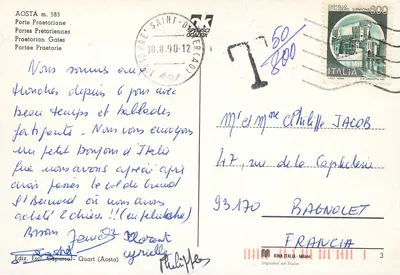 AOSTA m. 583
Porte Praetoriane
Portes Prétoriennes
Praetorian Gates
Pontae Praetorie
18.8.90-12
T
50/800
800
ITALIA
Nous sommes aux
depuis 6 jours avec
beau temps et ballades
fortifiantes. Nous vous envoyons
un petit bonjour d'Italie
que nous avons apprécié après
avoir passé le col du Grand
St Bernard où nous avons
acheté 2 chiens !! (en peluche)
Bisous
Florent
Cyrille
Philippe
Mr et Mme Philippe JACOB
47, rue de la Capsulerie
93170 BAGNOLET
FRANCIA
Quart (Aosta)
KINA ITALIA - Milano
3